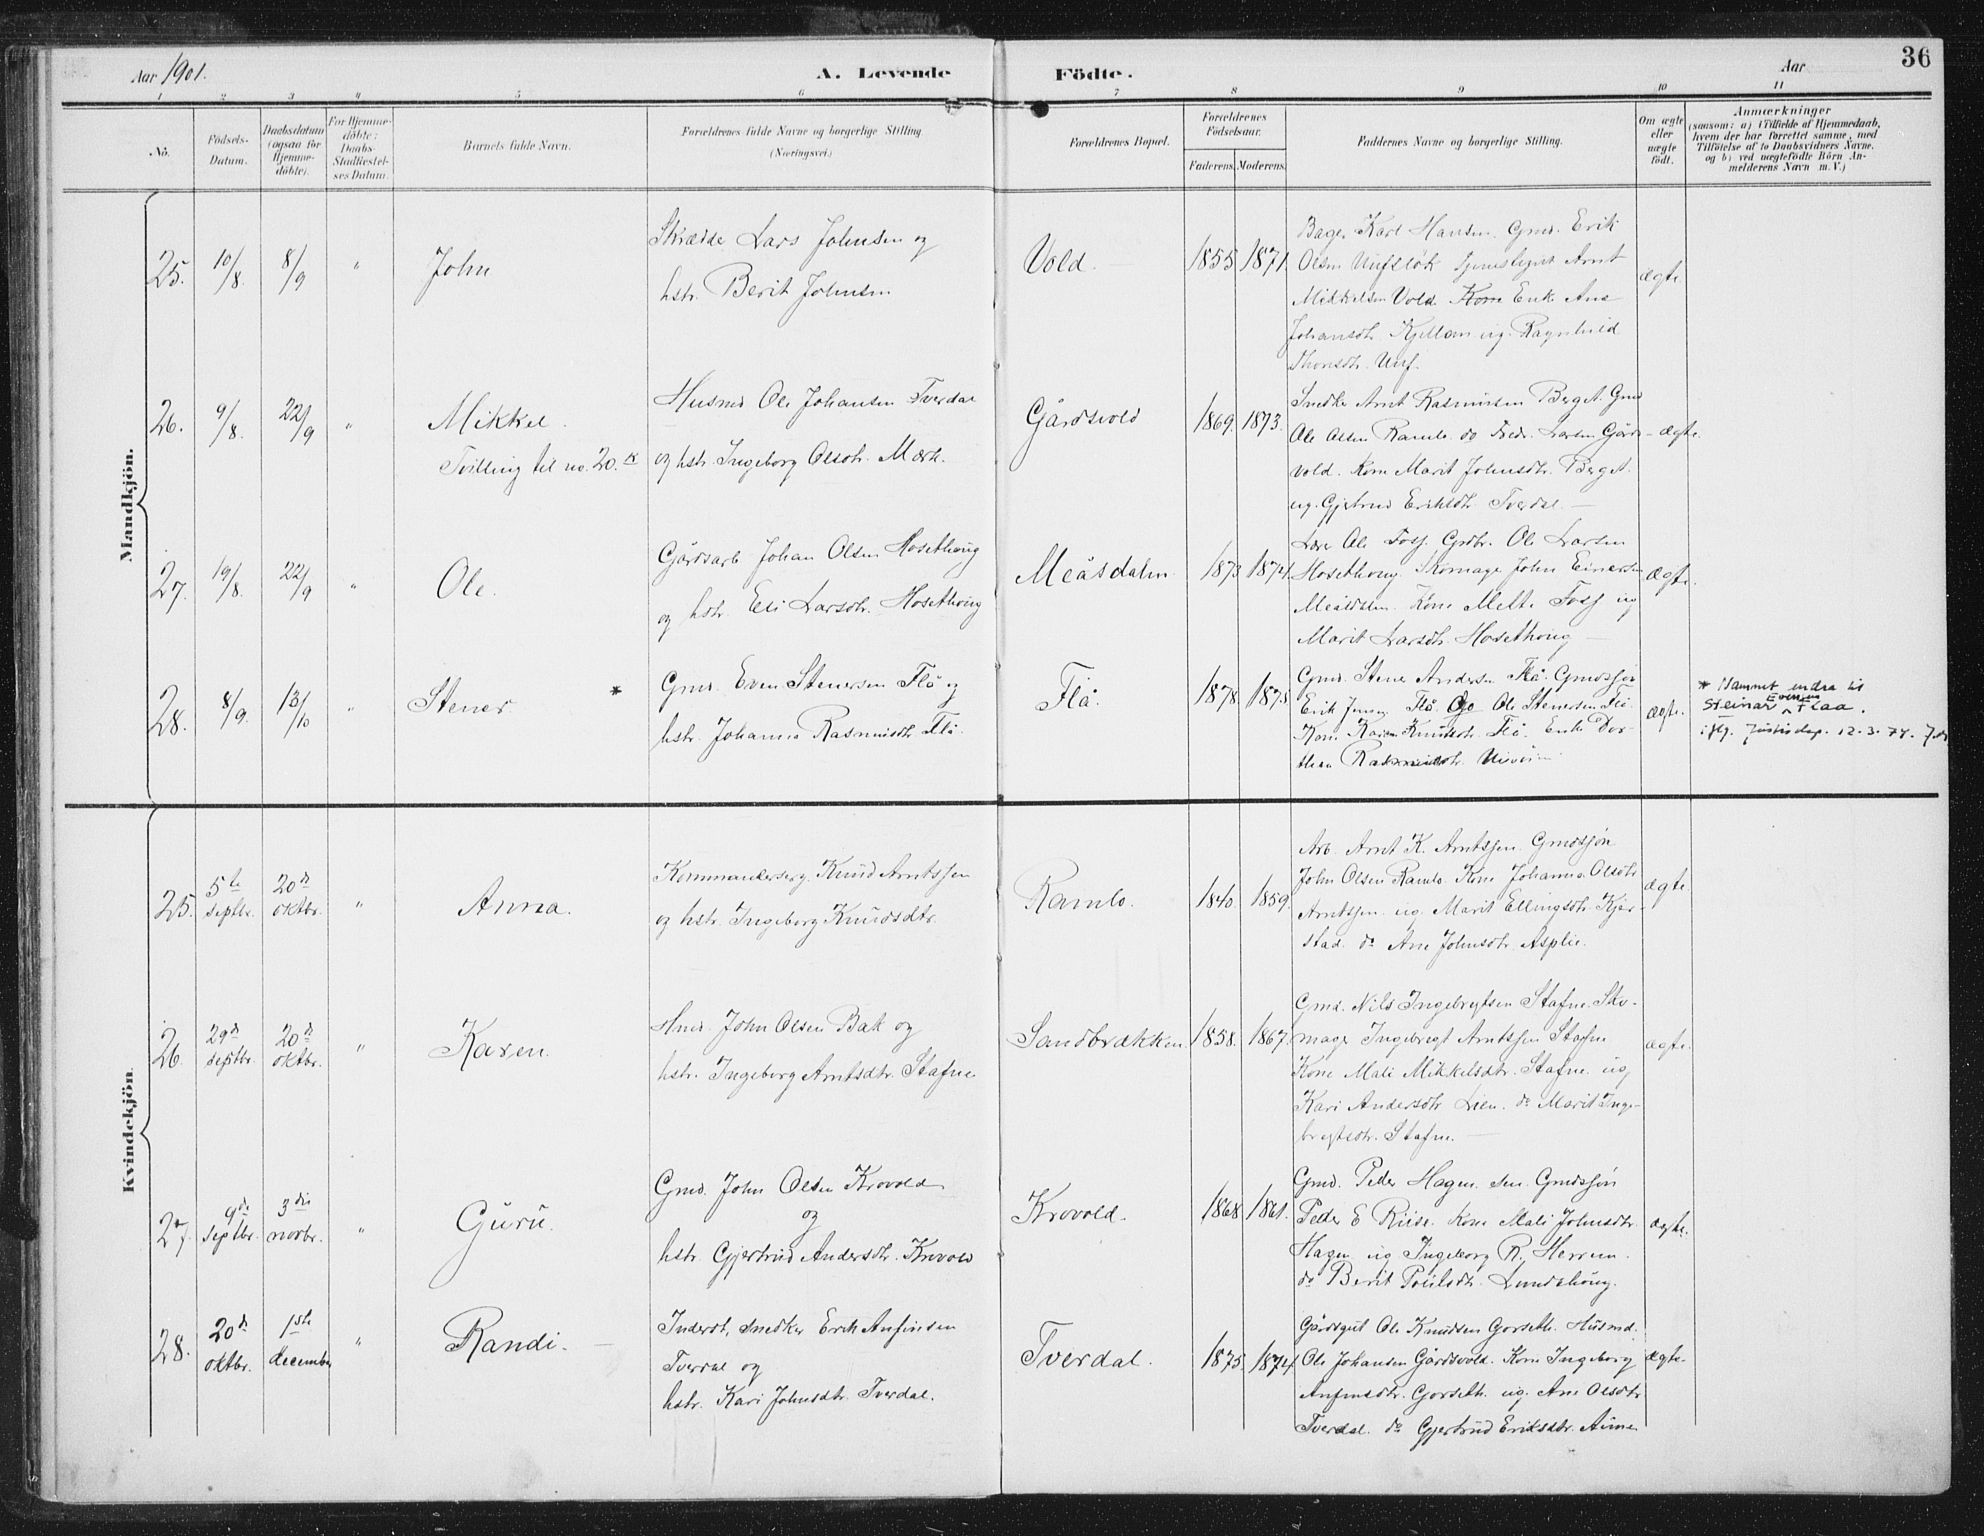 Aar 1901.
A. Levende Födte.
Aar
36
1 2 3 4 5 6 7 8 9 10 11
No.
Födsels-Datum.
Daabsdatum (ogsaa for Hjemmedöbte).
For Hjemmedöbte: Daabs-Stadfæstelses Datum.
Barnets fulde Navn.
Forældrenes fulde Navne og borgerlige Stilling. (Næringsvei.)
Forældrenes Bopæl.
Forældrenes Födselsaar.
Faderens. Moderens.
Faddernes Navne og borgerlige Stilling.
Om ægte eller uægte født.
Anmærkninger
(saasom: a) i Tilfælde af Hjemmedaab, hvem der har forrettet samme, med Tilföielse af to Daabsvidners Navne, og b) ved uægtefödte Börn Anmelderens Navn m. V.)
Mandkjön.
25. 10/8. 8/9 " John
Skrædde Lars Johnsen og
hstr. Berit Johnsen
Vold. 1855 1871.
Bager Karl Hansen. Gmd. Erik
Olsen Arnt
Mikkelsen Vold. Kone Ane
Johansdtr. og Ragnhild
ægte
26. 9/8. 22/9 " Mikkel.
Tvilling til no. 20.
Husmd Ole Johansen Tverdal
og hstr. Ingeborg Olsdtr. Mærk.
Gårdsvold 1869. 1873.
Snedke Arnt Rasmussen Berget. Gmd
Ole Olsen Ramlo. do Larsen Gårds-
vold. Kone Marit Johnsdtr. Berget.
ug. Gjertrud Eriksdtr. Tverdal
ægte.
27. 19/8. 22/9 " Ole.
Gårdsarb Johan Olsen Hosethoug
og hstr. Eli Larsdtr. Hosethoug
Meåsdalen 1873 1874.
Ole Fossj. Grdbr. Ole Larsen
Hosethoug. Skomage John Einarsen
Kone Fossj ug
Marit Larsdtr. Hosethoug
ægte.
28. 8/9. 13/10 " Stener. *
Gmd. Even Stenersen Flå og
hstr. Johanna Rasmusdtr. Flå.
Flå. 1878. 1875
Gmd. Stener Andersen Flå. Gmdssjøn
Erik Jensen Flå. Ole Stenersen Flå.
Kone Karen Knutsdtr. Flå. Enke Dor-
thea Rasmusdtr.
ægte.
* Namnet endra til
Steinar Evensen Flaa.
iflg. Justisdep. 12.3.74.
Kvindekjön
25. 5te septbr. 20d oktbr. " Anna.
Kommandersrg. Knud Arntssen
og hstr. Ingeborg Knudsdtr.
Ramlo. 1840. 1859.
Arb. Arnt K. Arntssen. Gmdssjøn
John Olsen Ramlo. Kone Johanna Olsdtr.
Arntssen. ug. Marit Ellingsdtr. Kjer-
stad. do Ane Johnsdtr. Asplie.
ægte
26. 29d septbr. 20d oktbr. " Karen.
Hmd. John Olsen Bak og
hstr. Ingeborg Arntsdtr. Stafne
Sandbrækken 1858. 1867.
Gmd. Nils Ingebregtsen Stafne. Sko-
mager Ingebregt Arntssen Stafne
Kone Mali Mikkelsdtr. Stafne. ug.
Kari Andersdtr. Lien. do Marit Inge-
bregtsdtr. Stafne.
ægte.
27. 9de septbr. 3die novbr. " Guru.
Gmd. John Olsen Krovold
og
hstr. Gjertrud Andersdtr. Krovold
Krovold. 1868 1861.
Gmd. Peder Hagen sen. Gmdssjøn
Peder E Riise. Kone Mali Johnsdtr.
Hagen ug Ingeborg R. Herrem.
do Berit Poulsdtr. Lundshoug.
ægte.
28. 20d oktbr. 1ste december " Randi.
Inderst, snedker Erik Anfinsen
Tverdal og
hstr. Kari Johnsdtr. Tverdal.
Tverdal. 1875. 1874
Gårdsgut Ole Knudsen Gorseth. Husmd.
Ole Johansen Gårdsvold. Kone Ingeborg
Anfinsdtr. Gorseth. ug. Ane Olsdtr
Tverdal. do Gjertrud Eriksdtr. Aune
ægte.